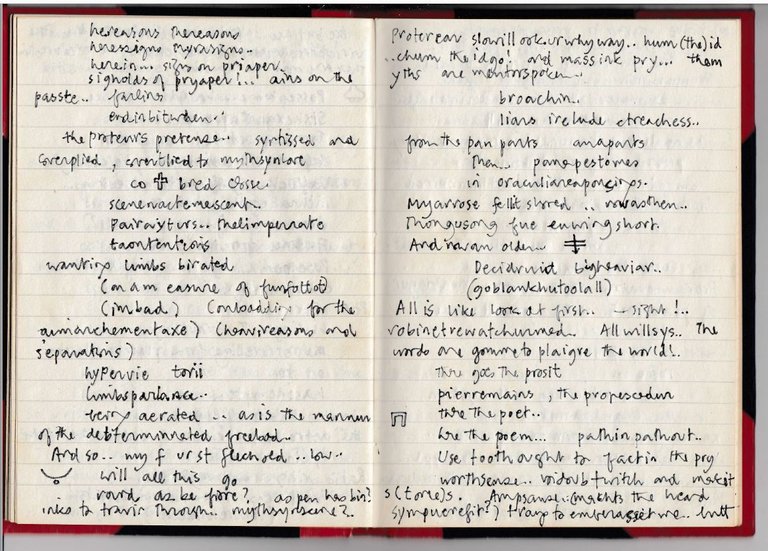 hereasons thereasons
heresigns myrasigns..
herein... signs on priaper
sigholds of pryaper!... ains on the
passte.. farlins
endisbiturben..
the proteur's pretense.. syrtissed and
, corentlied to mythsynlore
co bred classe
scenenactemescent..
Pairaiyturs.. thelimpernate
taontentions
wantings limbs birated
(an am easure of funfottot)
(imbad) (onloadding for the
aimarchementaxe) (heavireasons and
separations)
hyPervie torii
limbsparlance..
-being aerated ... as is the mannur
of the debterminnated freebod..
And so.. my f ur st fleehold .. low..
will all this go
round as be fore? as pen has bin?
inks to travir through.. mythsyrbscene?..
Proterear slowill ook ur why way.. hum (the) id
..chum the idgo! and mass ink pry... them
yths are mentorspoken..
broachin..
lians include etreachess..
from the pan parts anaparts
Then... panapestomes
in
Myarrose fellit shred. rowaothen..
Thongusong fue enwing short.
And navan olden...
Decidruid bigheaviar..
(goblankhutoolall)
All is like look at first.. — sight!..
robinetrewatchurnned. All willsys.. The
words are gonnre to plaigre the world!..
thre goes the prosit
pierremains, the propescedur
thre the poet..
hre the poem... pathin pathout..
Use toothought to factin the pry
worthsense.. voidoubtwith and makeit
s(tone)s. Ampsanse..(maghts the heard
sympuerefit?) trayp to emberassetwre.. butt